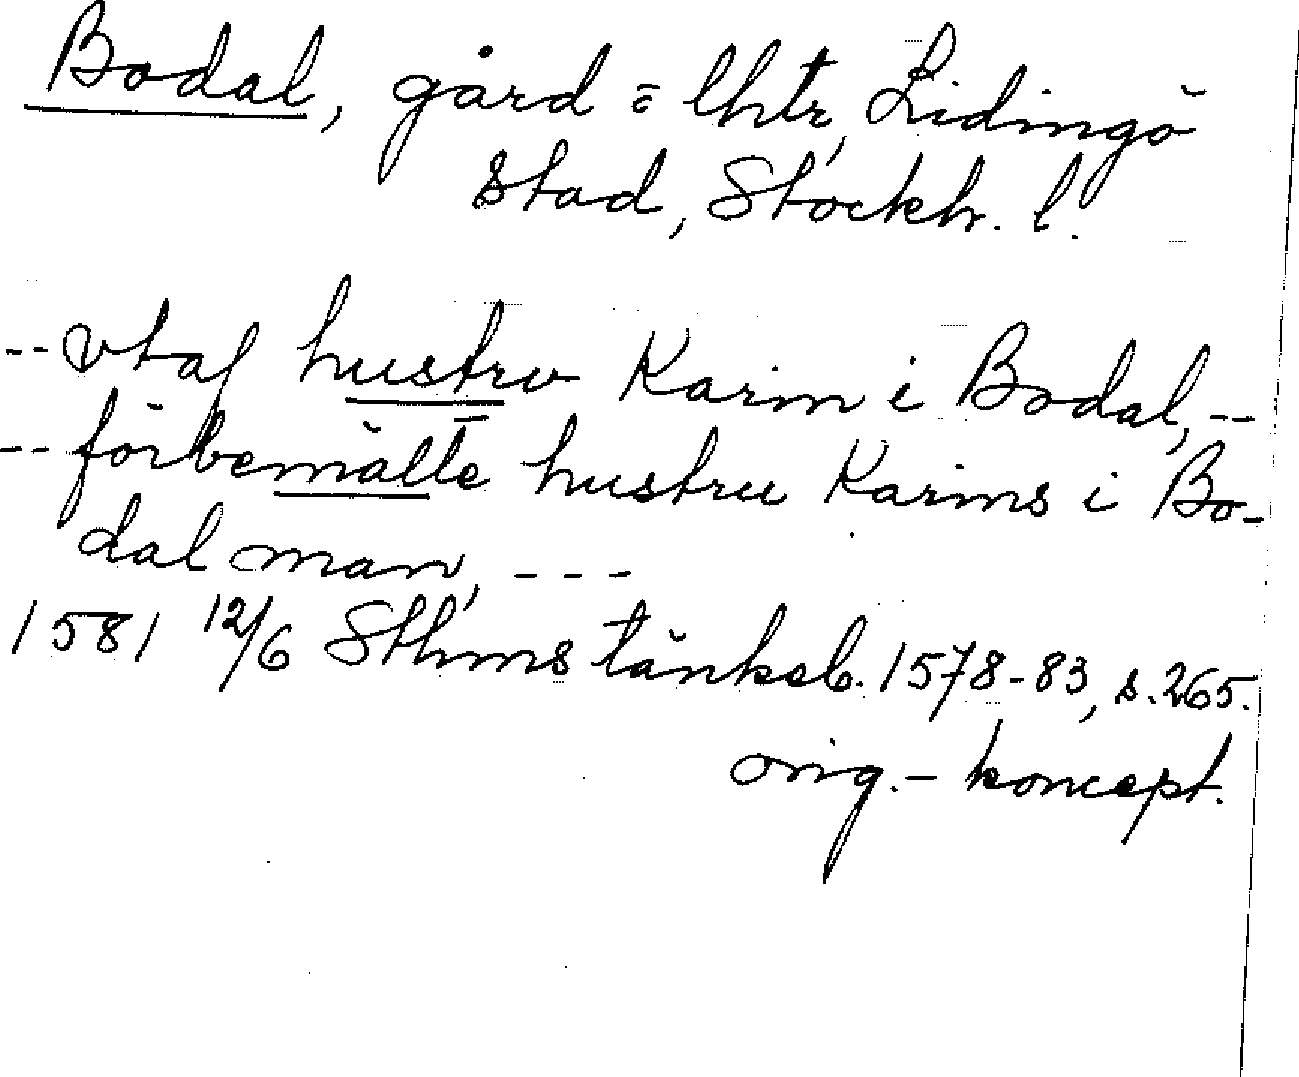 Bodal, gård o lht, Lidingö
stad, Stockh. l.
-- vtaf hustrv Karin i Bodal, --
-- förbemälte hustru Karins i Bo-
dal man, ---
1581 12/6 Sthms tänkeb. 1578-83, s. 265.
orig.-koncept.